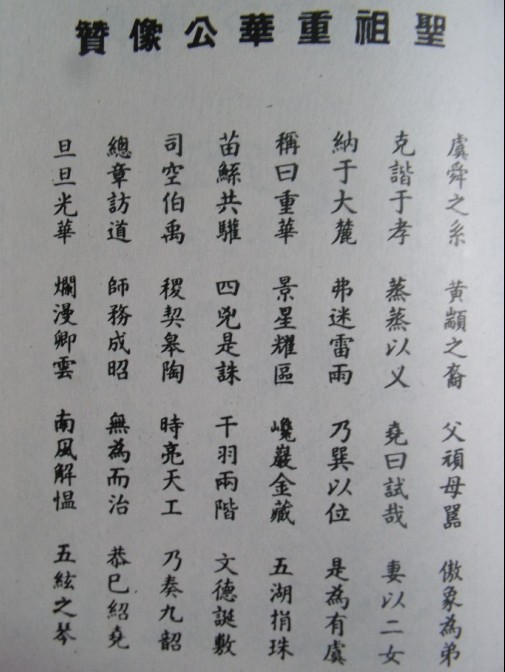 聖祖重華公像贊
虞舜之系 黃顓之裔 父頑母嚚 傲象為弟
克諧于孝 蒸蒸以乂 堯曰試哉 妻以二女
納于大麓 弗迷雷雨 乃巽以位 是為有虞
稱曰重華 景星耀區 巉巖金藏 五湖捐珠
苗鯀共驩 四兇是誅 干羽兩階 文德誕敷
司空伯禹 稷契皋陶 時亮天工 乃奏九韶
總章訪道 師務成昭 無為而治 恭已紹堯
旦旦光華 爛漫卿雲 南風解慍 五絃之琴